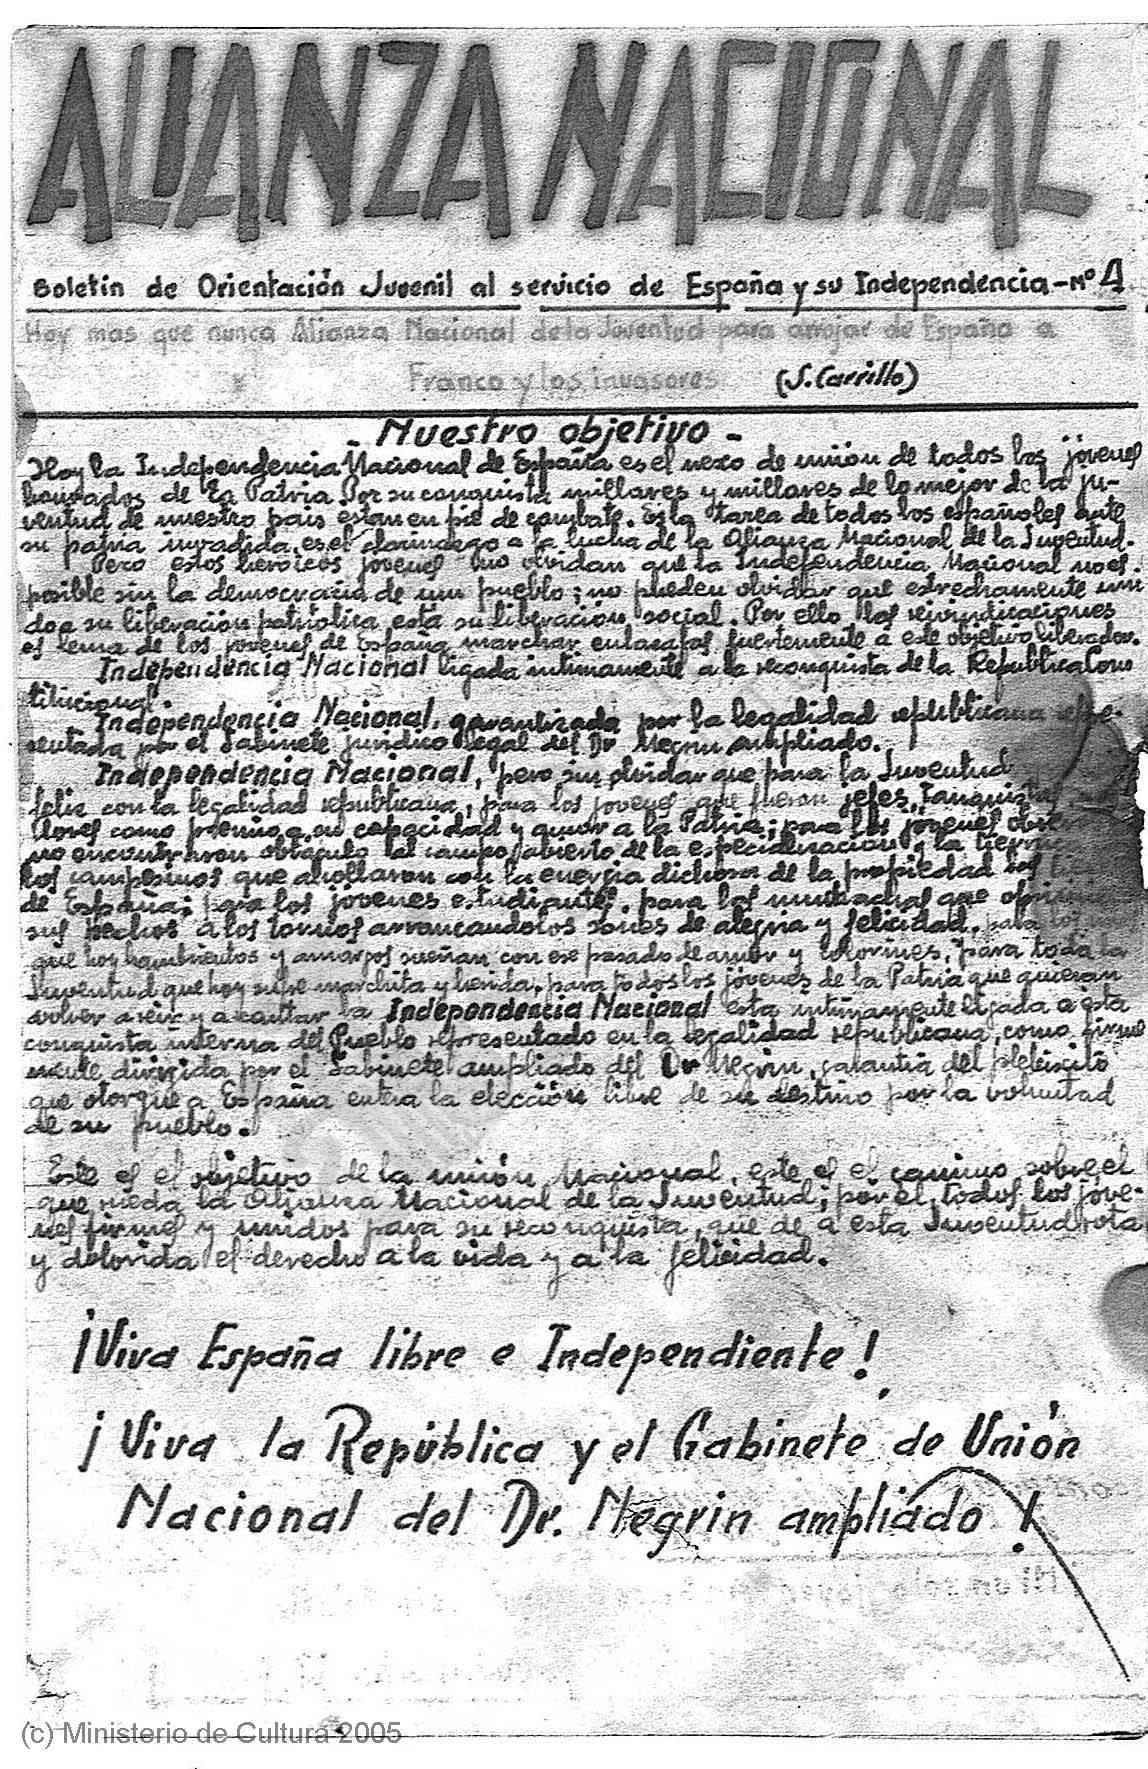 ALIANZA NACIONAL
Boletin de Orientación Juvenil al servicio de España y su Independencia - Nº 4
Hoy mas que nunca Alianza Nacional de la Joventud para arrojar de España a
Franco y los invasores (S. Carrillo)
- Nuestro objetivo -
Hoy la Independencia Nacional de España es el nexo de unión de todos los jóvenes
honrados de la Patria Por su conquista millares y millares de lo mejor de la ju-
ventud de nuestro pais estan en pie de combate. Es la tarea de todos los españoles ante
su patria invadida, es el a la lucha de la Alianza Nacional de la Juventud.
Pero estos heroicos jovenes no olvidan que la Independencia Nacional no es
posible sin la democracia de un pueblo; no pueden olvidar que estrechamente uni
do a su liberación patriótica esta su liberación social. Por ello, las reivindicaciones
es lema de los jovenes de España marchar enlazados fuertemente a este objetivo liberador.
Independencia Nacional ligada intimamente a la reconquista de la Republica Cons
titucional.
Independencia Nacional, garantizada por la legalidad republicana repre-
sentada por el Gabinete juridico legal del Dr Negrin ampliado.
Independencia Nacional, pero sin olvidar que para la Juventud
feliz con la legalidad republicana, para los jovenes que fueron jefes, tanquistas
como premio a su capacidad y amor a la Patria; para los jóvenes
no encontraron obstaculo al campo abierto de la especialización y la tierra
los campesinos que con la energia dichosa de la propiedad
de España; para los jóvenes estudiantes, para las muchachas que
sus pechos a los tornos arrancandolos sones de alegria y felicidad, para
que hoy hambrientos y amargos sueñan con ese pasado de amor y colorines, para toda la
Juventud que hoy sufre marchita y herida, para todos los jóvenes de la Patria que quieran
volver a reir y a cantar la Independencia Nacional esta intimamente ligada a esta
conquista interna del Pueblo representado en la legalidad republicana, como firme
mente dirigida por el Gabinete ampliado del Dr Negrin, garantia del plebiscito
que otorgue a España entera la elección libre de su destino por la voluntad
de su pueblo.
Este es el objetivo de la unión Nacional, este es el camino sobre el
que rueda la Alianza Nacional de la Juventud; por el, todos los jove-
nes firmes y unidos para su reconquista, que de a esta Juventud rota
y dolorida el derecho a la vida y a la felicidad.
¡Viva España libre e Independiente!
¡Viva la República y el Gabinete de Unión
Nacional del Dr. Negrin ampliado!
(c) Ministerio de Cultura 2005